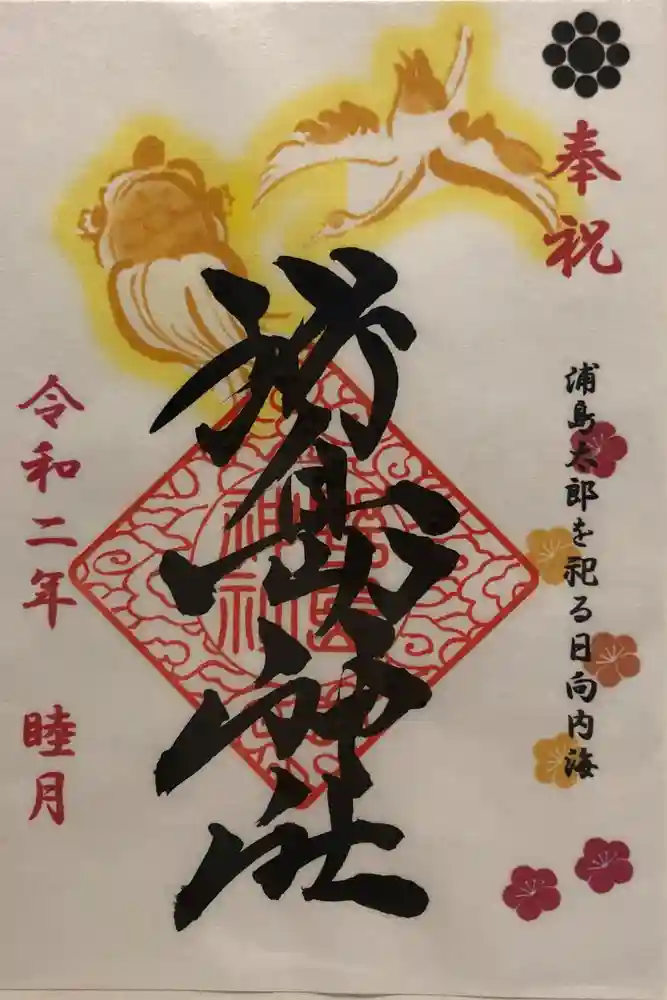 奉祝
浦島太郎を祀る日向内海
野島神社
令和二年 睦月